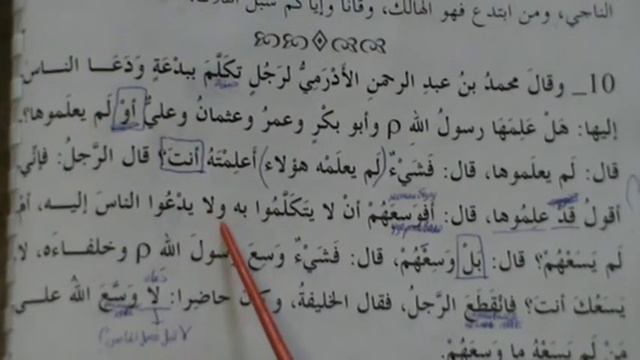 الناجي، ومن ابتدع فهو الهالك، وقانا وإياكم سبل
10_ وقالَ محمدُ بنُ عبدِ الرحمنِ الأَدْرَمِيُّ لرَجُلٍ تكَلَّمَ ببِدْعَةٍ وَدَعَا الناسَ
إليها: هَلْ عَلِمَهَا رسولُ اللهِ ρ وأبو بكْرٍ وعمرُ وعثمانُ وعليٌّ أوْ لَم يعلَموها؟.
قالَ: لَم يعلَموها، قال: فَشَيْءٌ لَم يعلَمْه هؤلاء أعلِمْتَهُ أنتَ؟ قال الرَّجلُ: فإنِّي
أقولُ قَدْ علِمُوها، قال: أفوسِعَهُمْ أنْ لا يتَكلَّمُوا به ولا يدْعُوا الناسَ إليه، أم
لَم يَسَعْهُمْ؟ قال: بلْ وسِعَهُمْ، قال: فَشَيْءٌ وَسِعَ رسولَ الله ρ وخلفاءَه، لا
يَسَعُكَ أنتَ؟ فانْقَطَعَ الرَّجلُ، فقال الخليفةُ، وكانَ حاضِرا: لا وَسَّعَ اللهُ على
مَنْ لَم يَسَعْهُ ما وسِعَهُمْ.